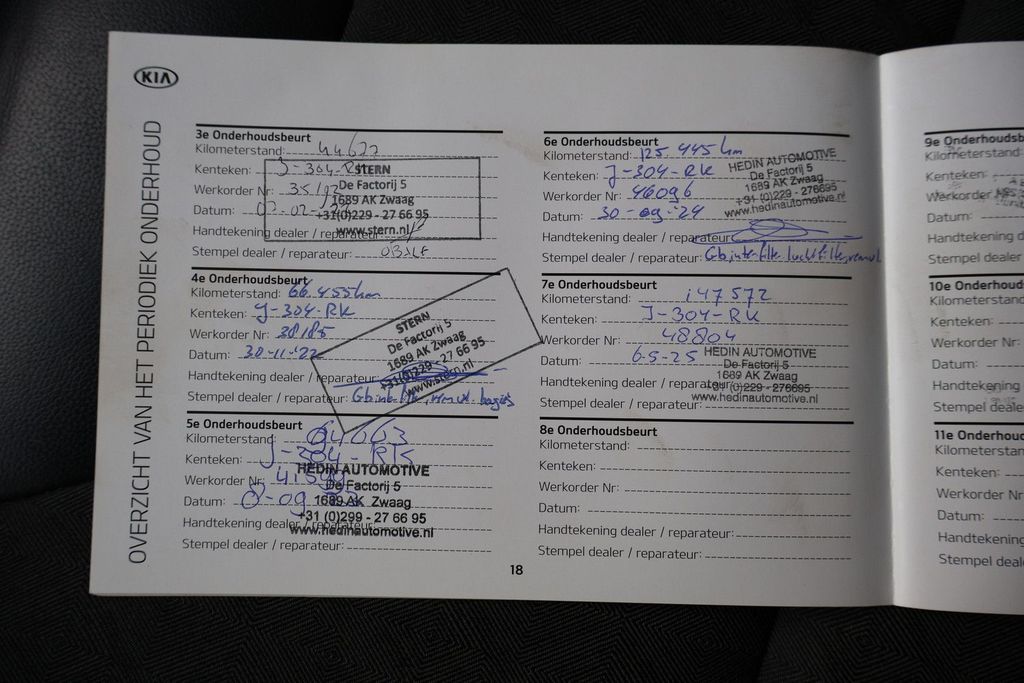 KIA
OVERZICHT VAN HET PERIODIEK ONDERHOUD
3e Onderhoudsbeurt
Kilometerstand: 44677
Kenteken: J-304-RK
Werkorder Nr:
Datum:
Handtekening dealer / reparateur:
Stempel dealer / reparateur:
STERN
De Factorij 5
1689 AK Zwaag
+31(0)229 - 27 66 95
www.stern.nl
4e Onderhoudsbeurt
Kilometerstand: 66.455km
Kenteken: J-304-RK
Werkorder Nr: 38185
Datum: 30-11-'22
Handtekening dealer / reparateur:
Stempel dealer / reparateur:
STERN
De Factorij 5
1689 AK Zwaag
+31(0)229 - 27 66 95
www.stern.nl
5e Onderhoudsbeurt
Kilometerstand:
Kenteken: J-304-RK
Werkorder Nr:
Datum:
Handtekening dealer / reparateur:
Stempel dealer / reparateur:
HEDIN AUTOMOTIVE
De Factorij 5
1689 AK Zwaag
+31 (0)299 - 27 66 95
www.hedinautomotive.nl
6e Onderhoudsbeurt
Kilometerstand: 125.445km
Kenteken: J-304-RK
Werkorder Nr: 46096
Datum: 30-09-24
Handtekening dealer / reparateur:
Stempel dealer / reparateur:
HEDIN AUTOMOTIVE
De Factorij 5
1689 AK Zwaag
+31 (0)229 - 276695
www.hedinautomotive.nl
7e Onderhoudsbeurt
Kilometerstand: 147572
Kenteken: J-304-RK
Werkorder Nr: 48804
Datum: 6-5-25
Handtekening dealer / reparateur:
Stempel dealer / reparateur:
HEDIN AUTOMOTIVE
De Factorij 5
1689 AK Zwaag
+31 (0)229 - 276695
www.hedinautomotive.nl
8e Onderhoudsbeurt
Kilometerstand:
Kenteken:
Werkorder Nr:
Datum:
Handtekening dealer / reparateur:
Stempel dealer / reparateur:
18
9e Onderhoudsb
Kilometerstand:
Kenteken:
Werkorder Nr:
Datum:
Handtekening d
Stempel dealer
10e Onderhoud
Kilometerstand
Kenteken:
Werkorder Nr:
Datum:
Handtekening
Stempel deale
11e Onderhou
Kilometerstan
Kenteken:
Werkorder Nr:
Datum:
Handtekening
Stempel deal